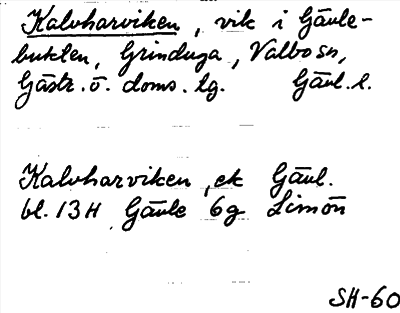 Kalvharviken, vik i Gävle-
bukten, Grinduga, Valbo sn,
Gästr. ö. doms. tg. Gävl. l.
Kalvharviken, ek Gävl.
bl. 13H Gävle 6g Limön
SH-60